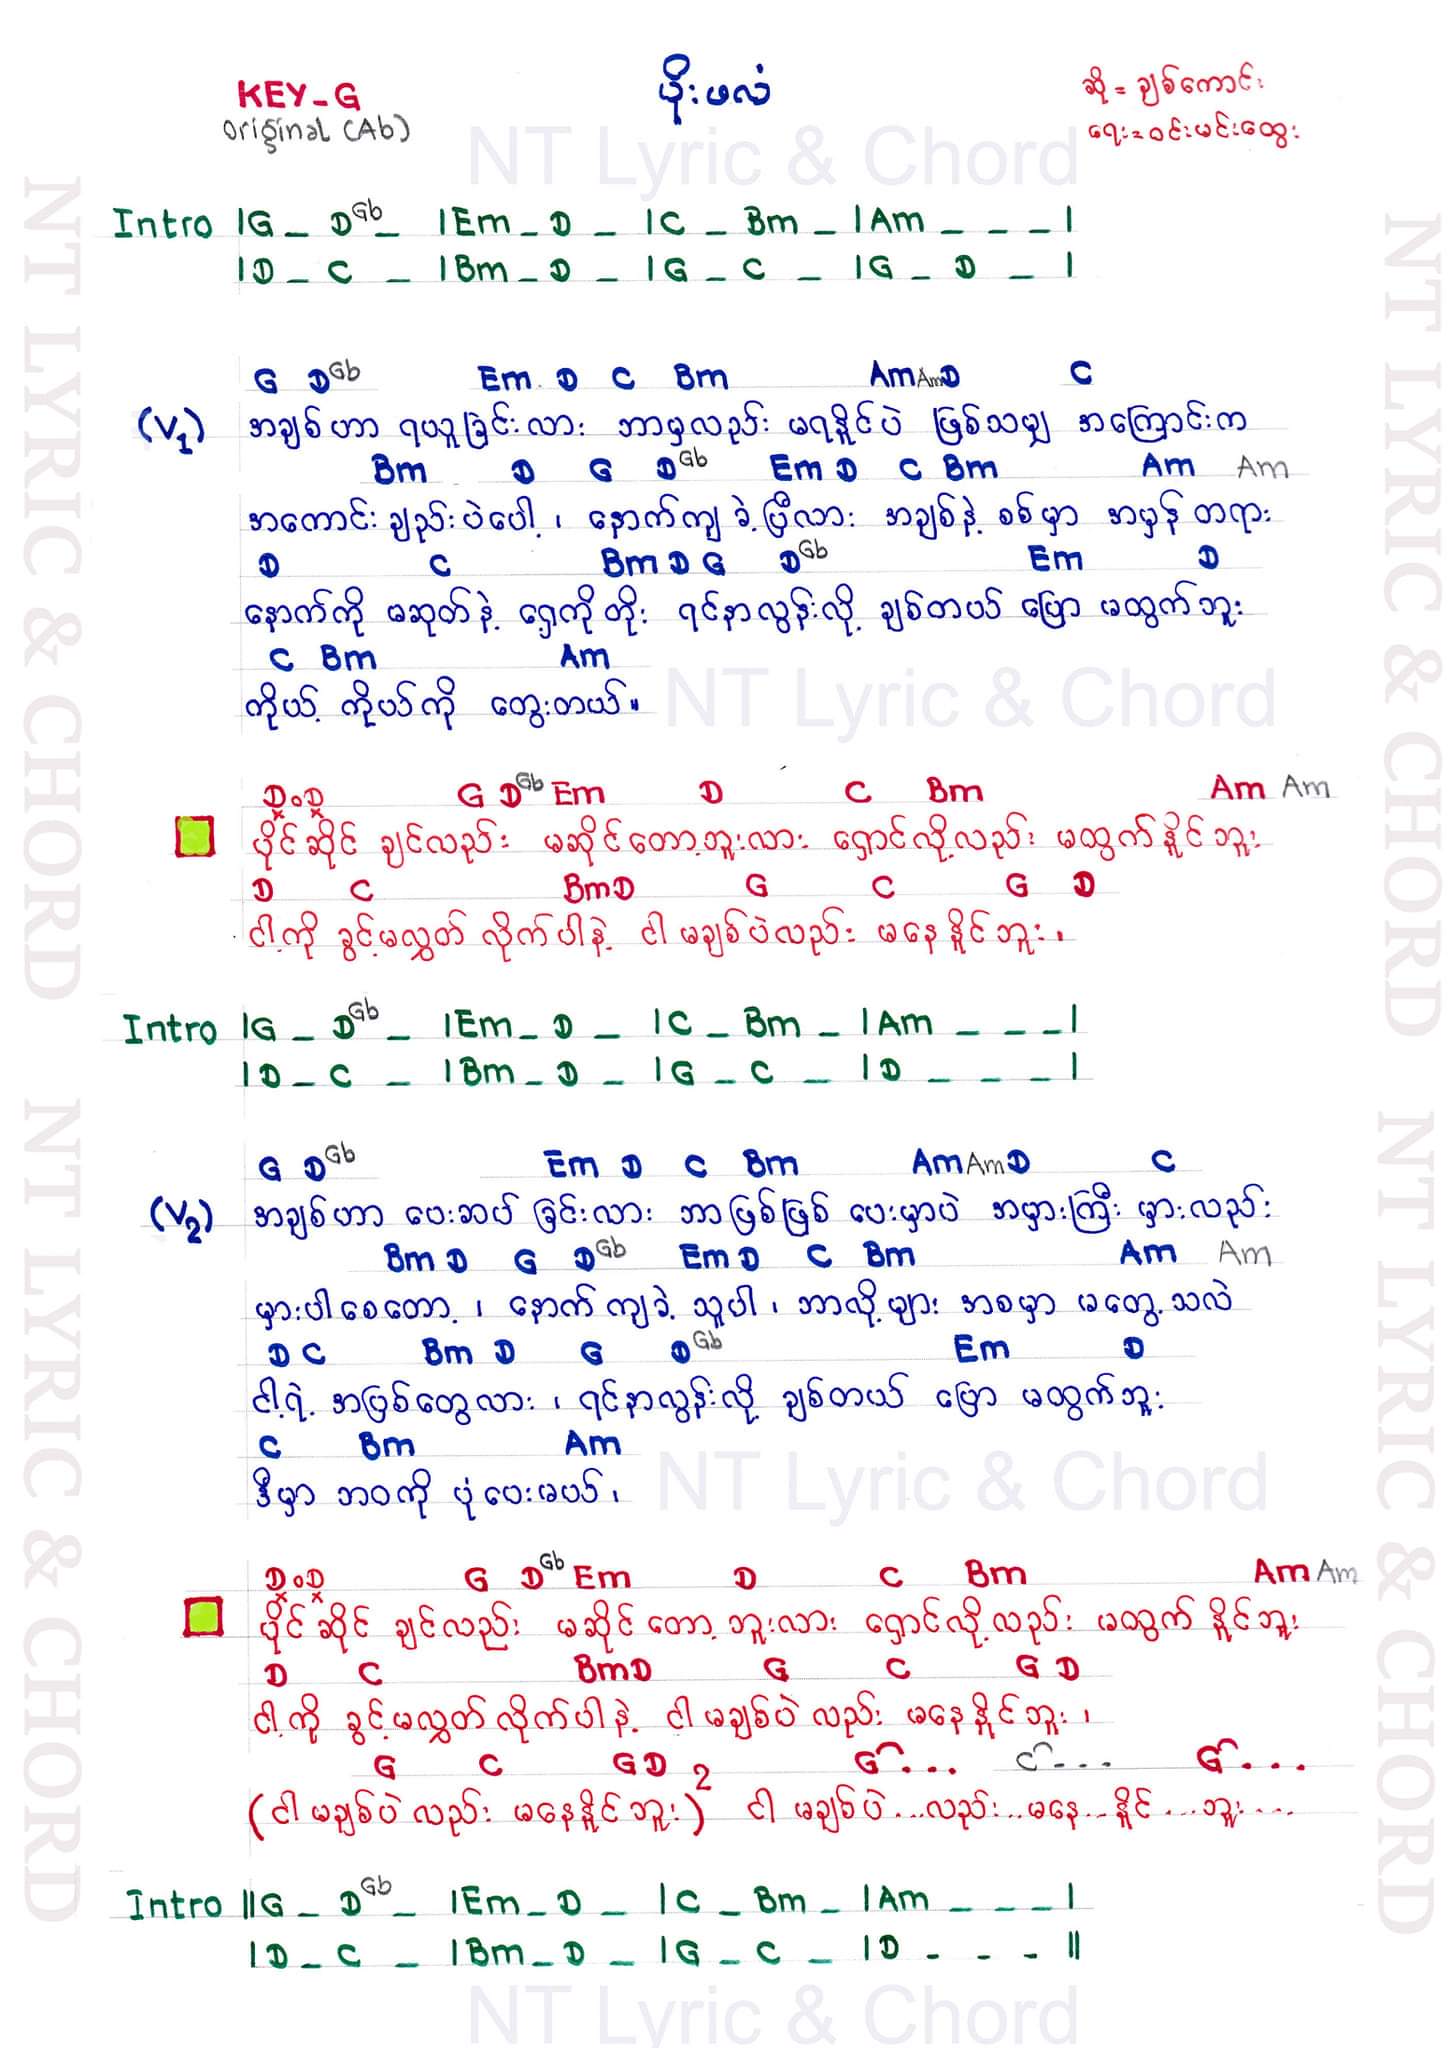 KEY-G
Original (Ab)
ပိုးဖလံ
ဆို = ချစ်ကောင်း
ရေး = ဝင်းမင်းထွေး
NT Lyric & Chord
Intro |G _ D Gb _ |Em _ D _ |C _ Bm _ |Am _ _ _ |
|D _ C _ |Bm _ D _ |G _ C _ |G _ D _ |
G D Gb Em D C Bm Am Am D C
(V1) အချစ်ဟာ ရယူခြင်းလား ဘာမှလည်း မရနိုင်ပဲ ဖြစ်သမျှ အကြောင်းက
Bm D G D Gb Em D C Bm Am Am
အကောင်းချည်းပဲပေါ့ ၊ နောက်ကျခဲ့ပြီလား အချစ်နဲ့ စစ်မှာ အမှန်တရား
D C Bm D G D Gb Em D
နောက်ကို မဆုတ်နဲ့ ရှေ့ကိုတိုး ရင်နာလွန်းလို့ ချစ်တယ် ပြော မထွက်ဘူး
C Bm Am
ကိုယ့် ကိုယ်ကို တွေးတယ်။
NT Lyric & Chord
D o D G D Gb Em D C Bm Am Am
ပိုင်ဆိုင် ချင်လည်း မဆိုင်တော့ဘူးလား ရှောင်လို့လည်း မထွက်နိုင်ဘူး
D C Bm D G C G D
ငါ့ကို ခွင့်မလွှတ် လိုက်ပါနဲ့ ငါ မချစ်ပဲလည်း မနေနိုင်ဘူး ၊
Intro |G _ D Gb _ |Em _ D _ |C _ Bm _ |Am _ _ _ |
|D _ C _ |Bm _ D _ |G _ C _ |D _ _ _ |
G D Gb Em D C Bm Am Am D C
(V2) အချစ်ဟာ ပေးဆပ် ခြင်းလား ဘာဖြစ်ဖြစ် ပေးမှာပဲ အမှားကြီး မှားလည်း
Bm D G D Gb Em D C Bm Am Am
မှားပါစေတော့ ၊ နောက်ကျခဲ့ သူပါ ၊ ဘာလို့များ အစမှာ မတွေ့သလဲ
D C Bm D G D Gb Em D
ငါ့ရဲ့ အဖြစ်တွေလား ၊ ရင်နာလွန်းလို့ ချစ်တယ် ပြော မထွက်ဘူး
C Bm Am
ဒီမှာ ဘဝကို ပုံပေးမယ် ၊
NT Lyric & Chord
D o D G D Gb Em D C Bm Am Am
ပိုင်ဆိုင် ချင်လည်း မဆိုင်တော့ဘူးလား ရှောင်လို့လည်း မထွက်နိုင်ဘူး
D C Bm D G C G D
ငါ့ကို ခွင့်မလွှတ်လိုက်ပါနဲ့ ငါ မချစ်ပဲ လည်း မနေနိုင်ဘူး ၊
G C G D G... C... G...
(ငါ မချစ်ပဲ လည်း မနေနိုင်ဘူး)2 ငါ မချစ်ပဲ...လည်း...မနေ...နိုင်...ဘူး...
Intro ||G _ D Gb _ |Em _ D _ |C _ Bm _ |Am _ _ _ |
|D _ C _ |Bm _ D _ |G _ C _ |D - - - ||
NT Lyric & Chord
NT LYRIC & CHORD NT LYRIC & CHORD
NT LYRIC & CHORD NT LYRIC & CHORD